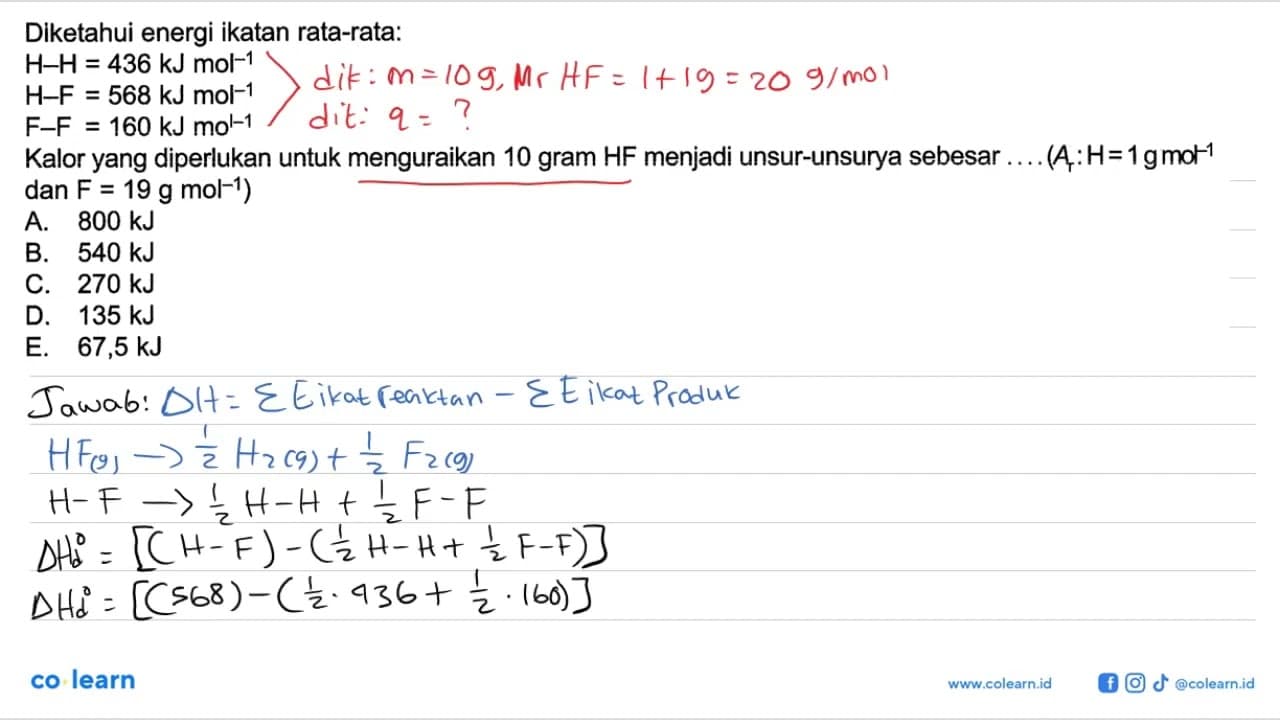 Diketahui energi ikatan rata-rata:
H–H = 436 kJ mol⁻¹
H–F = 568 kJ mol⁻¹
F–F = 160 kJ mol⁻¹
dik: m = 10 g, Mr HF = 1 + 19 = 20 g/mol
dit: q = ?
Kalor yang diperlukan untuk menguraikan 10 gram HF menjadi unsur-unsurya sebesar .... (Aᵣ: H = 1 g mol⁻¹
dan F = 19 g mol⁻¹)
A. 800 kJ
B. 540 kJ
C. 270 kJ
D. 135 kJ
E. 67,5 kJ
Jawab: ΔH = Σ E ikat reaktan – Σ E ikat Produk
HF(g) → 1/2 H₂(g) + 1/2 F₂(g)
H–F → 1/2 H–H + 1/2 F–F
ΔHd° = [(H–F) – (1/2 H–H + 1/2 F–F)]
ΔHd° = [(568) – (1/2 · 436 + 1/2 · 160)]
co learn
www.colearn.id
@colearn.id